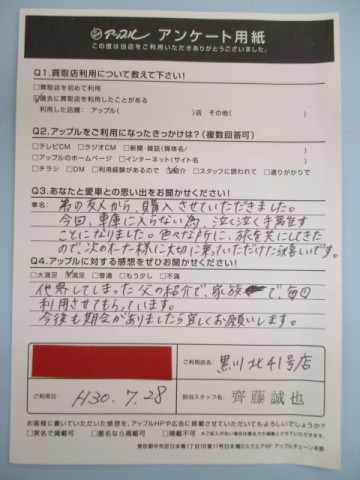 アップル アンケート用紙
この度は当店をご利用いただきありがとうございました。
Q1.買取店利用について教えて下さい!
□買取店を初めて利用
☑過去に買取店を利用したことがある
利用した店舗:アップル( )店 その他( )
Q2.アップルをご利用になったきっかけは?(複数回答可)
□テレビCM □ラジオCM □新聞・雑誌(媒体名/ )
□アップルのホームページ □インターネット(サイト名 )
□チラシ □DM □利用経験があるので ☑紹介 □スタッフに誘われて □通りがかりで
Q3.あなたと愛車との思い出をお聞かせください!
車名:
弟の友人から、購入させていただきました。
今回、車庫に入らない為、泣く泣く手放す
ことになりました。色々な所に、旅を共にしてきた
ので、次のオーナー様に大切に乗っていただけたら嬉しいです。
Q4.アップルに対する感想をぜひお聞かせください!
□大満足 ☑満足 □普通 □もう少し □不満
他界してしまった父の紹介で、家族で、毎回
利用させてもらっています。
今後も機会がありましたら宜しくお願いします。
ご利用店名: 黒川北41号店
ご利用日: H30.7.28
担当スタッフ名: 齊藤誠也
お客様に書いていただいた感想を、アップルHPや広告に掲載させていただいてもよろしいでしょうか?
□実名で掲載可 □匿名なら掲載可 □掲載不可
東京都中央区日本橋1丁目16番11号日本橋Dスクエア5F アップルチェーン本部